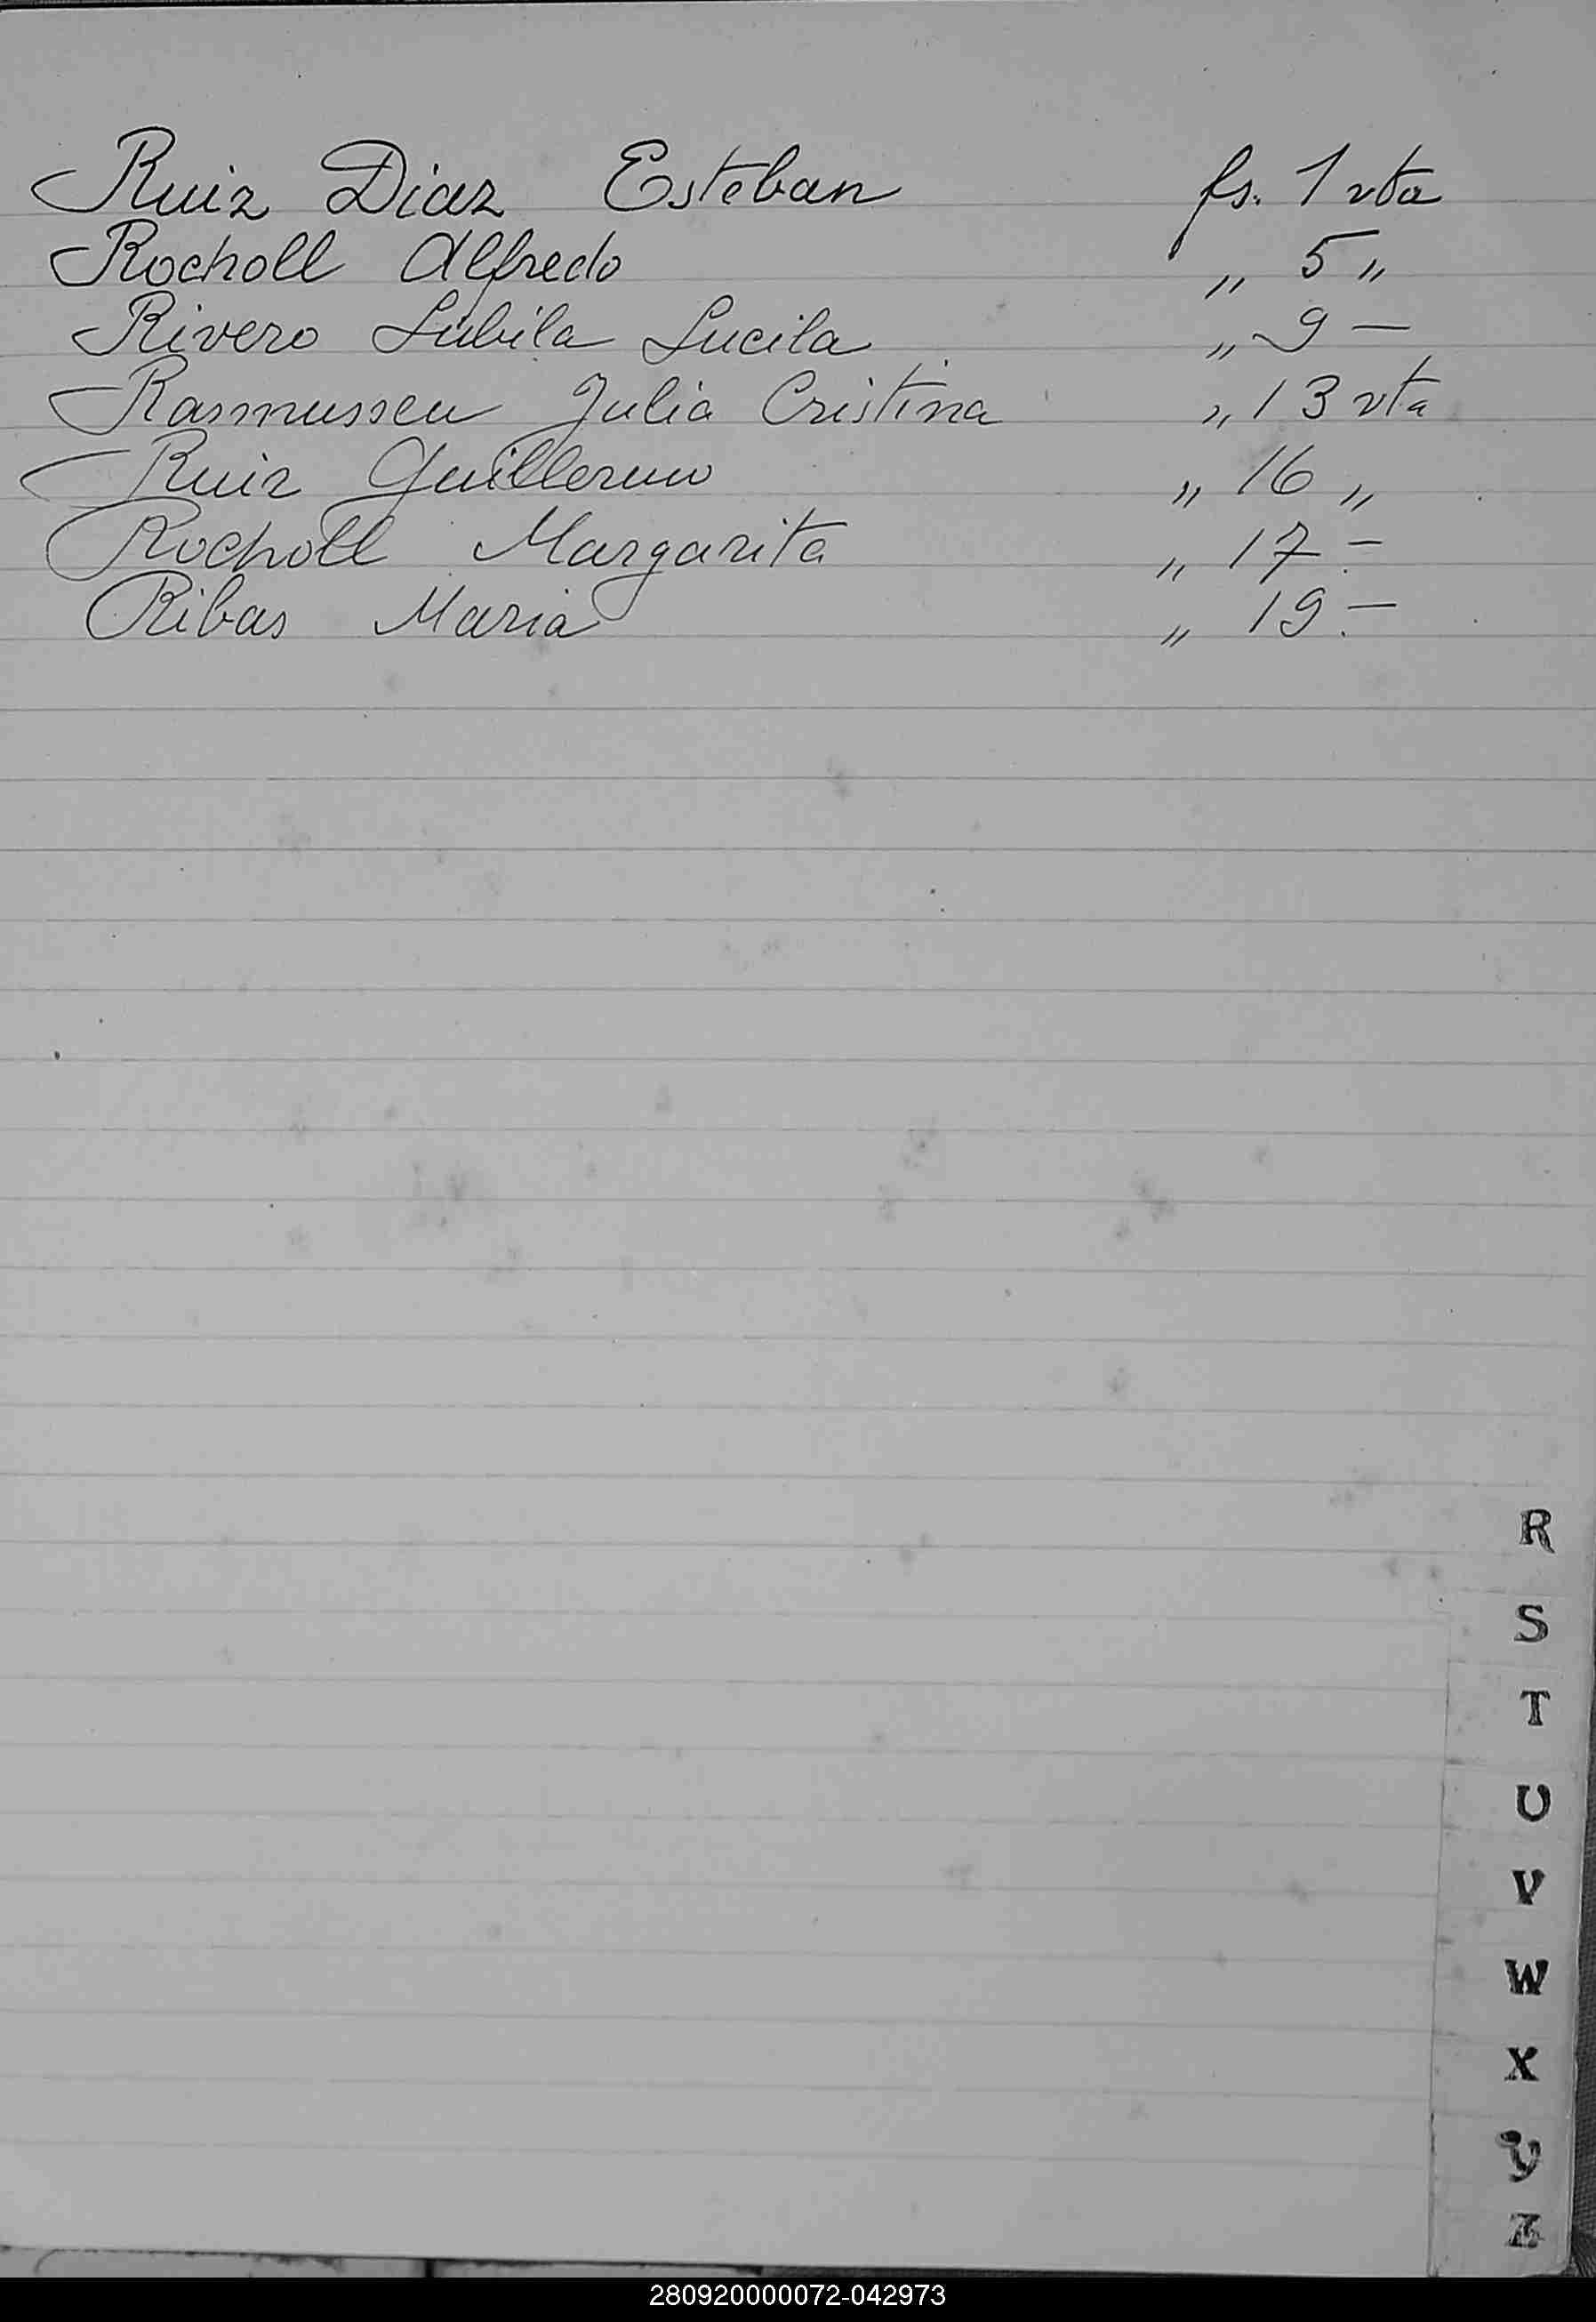 Ruiz Diaz Esteban fs. 1 vta
Rocholl Alfredo „ 5 „
Rivero Lubila Lucila „ 9 —
Rasmussen Julia Cristina „ 13 vta
Ruiz Guillermo „ 16 „
Rocholl Margarita „ 17.—
Ribas Maria „ 19.—
R
S
T
U
V
W
X
Y
Z
280920000072-042973